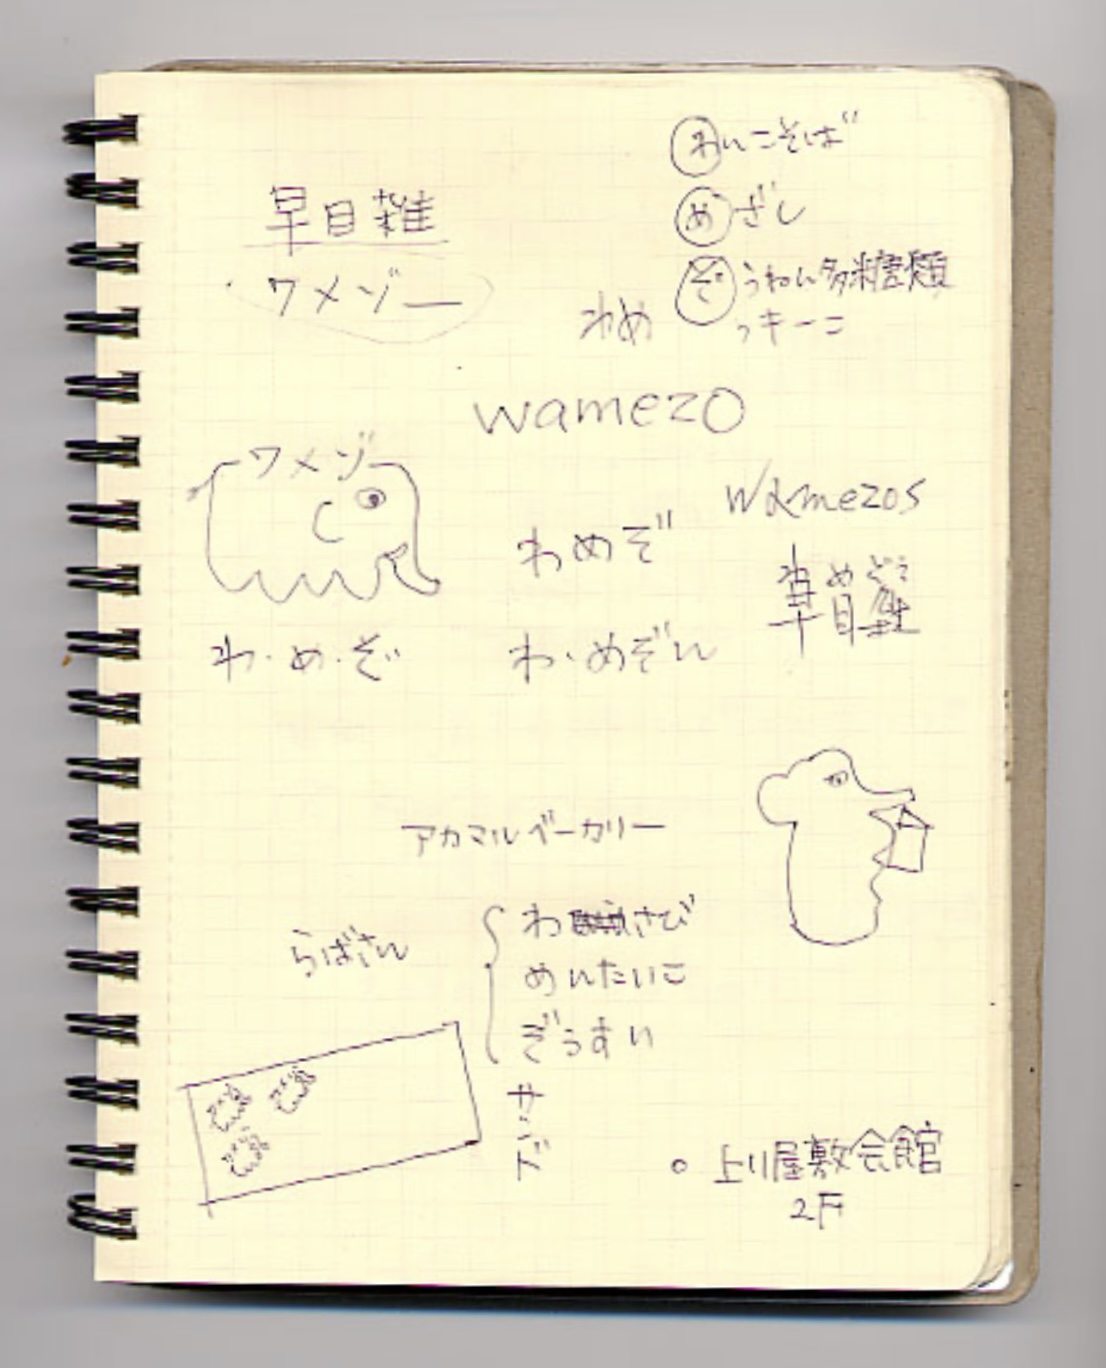 わんこそば
めざし
ぞうわん多糖類
っキーニ
早目雑
ワメゾー
わめ
wamezo
ワメゾ
wamezos
わめぞ
わめぞう
早目雑
わ・め・ぞ
わ・めぞん
アカマルベーカリー
らばさん
わさび
めんたいこ
ぞうすい
サンド
上り屋敷会館
2F